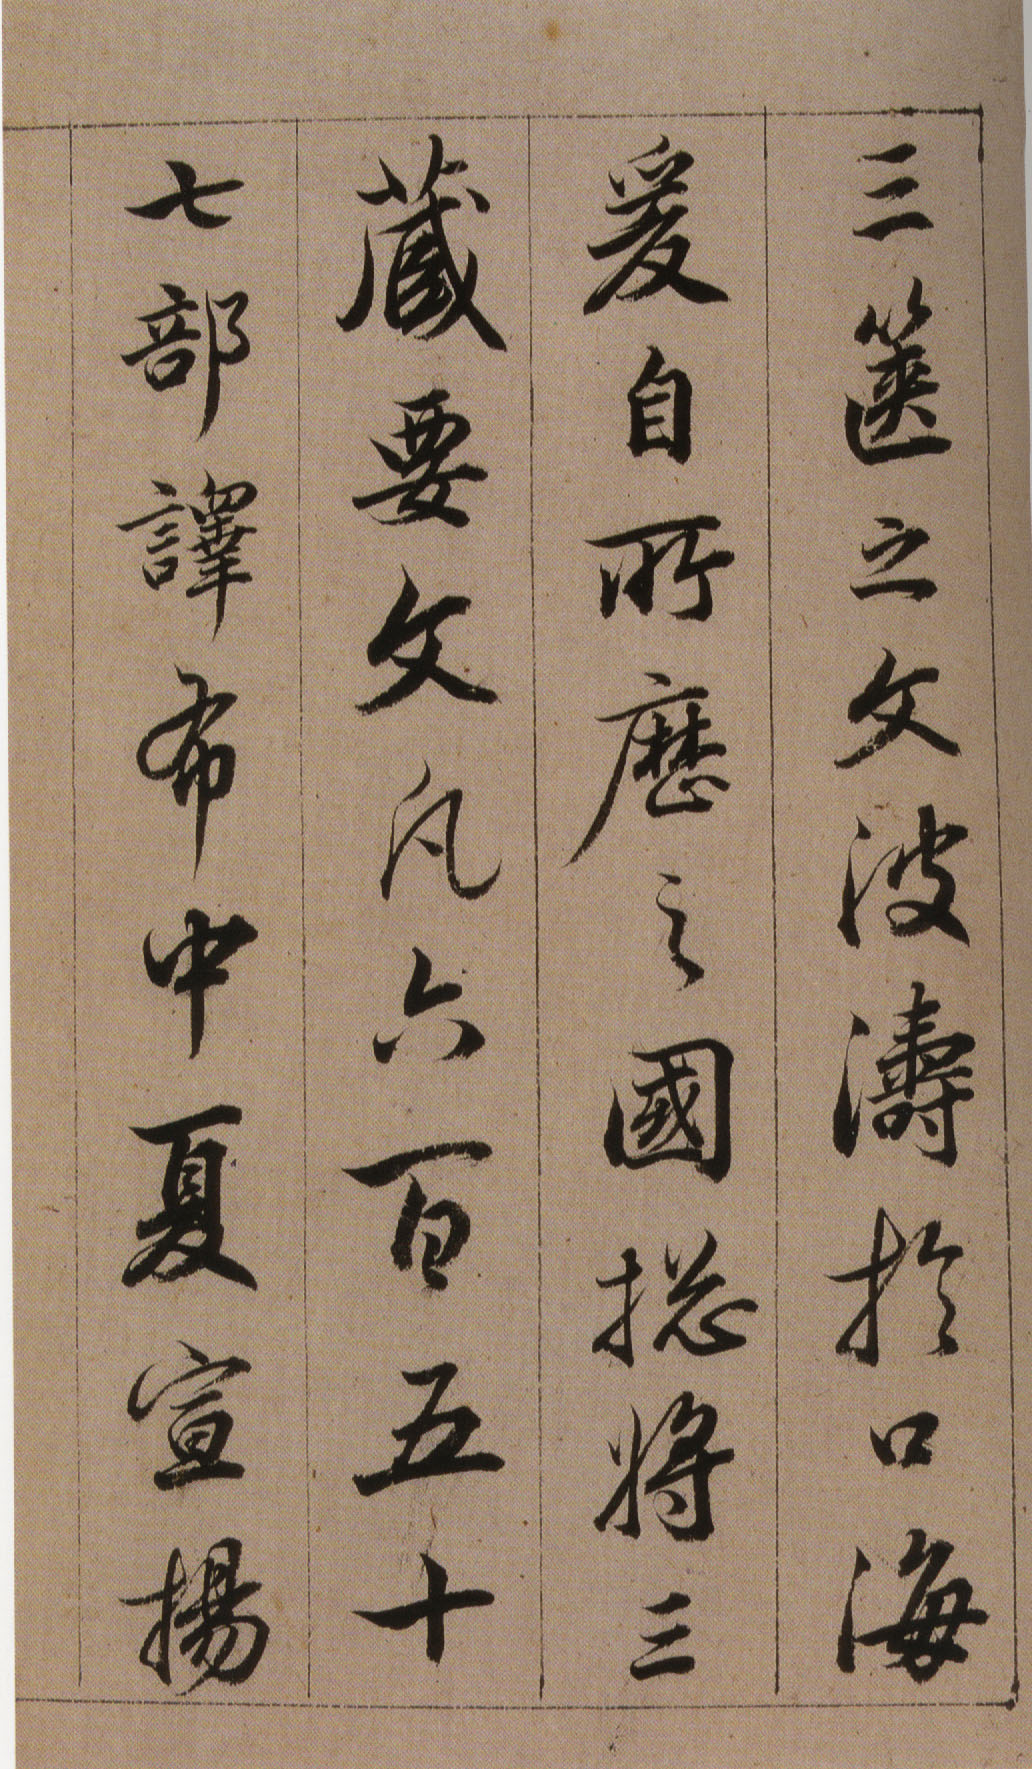 三篋之文波濤於口海
爰自所歷之國揔將三
藏要文凡六百五十
七部譯布中夏宣揚